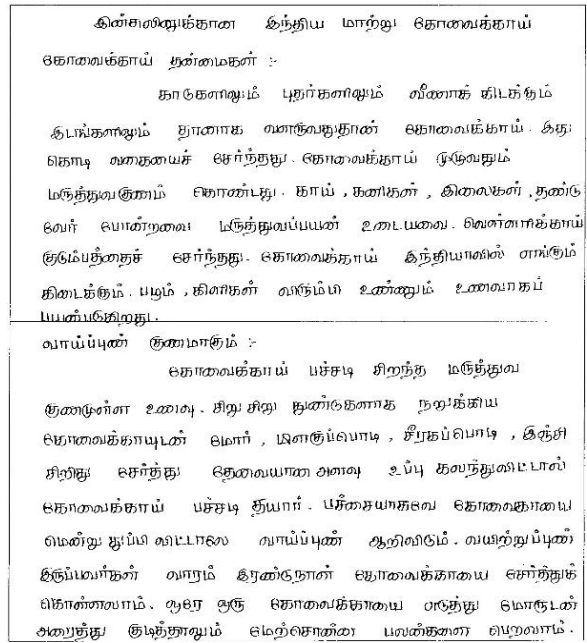 இன்சுலினுக்கான இந்திய மாற்று கோவைக்காய்
கோவைக்காய் தன்மைகள் :-
காடுகளிலும் புதர்களிலும் வீணாக் கிடக்கும்
இடங்களிலும் தானாக வளருவதுதான் கோவைக்காய். இது
கொடி வகையைச் சேர்ந்தது. கோவைக்காய் முழுவதும்
மருத்துவகுணம் கொண்டது. காய், கனிகள், இலைகள், தண்டு
வேர் போன்றவை மருத்துவப்பயன் உடையவை. வெள்ளரிக்காய்
குடும்பத்தைச் சேர்ந்தது. கோவைக்காய் இந்தியாவில் எங்கும்
கிடைக்கும். பழம், கிளிகள் விரும்பி உண்ணும் உணவாகப்
பயன்படுகிறது.
வாய்ப்புண் குணமாகும் :-
கோவைக்காய் பச்சடி சிறந்த மருத்துவ
குணமுள்ள உணவு. சிறு சிறு துண்டுகளாக நறுக்கிய
கோவைக்காயுடன் மோர், மிளகுப்பொடி, சீரகப்பொடி, இஞ்சி
சிறிது சேர்த்து தேவையான அளவு உப்பு கலந்துவிட்டால்
கோவைக்காய் பச்சடி தயார். பச்சையாகவே கோவைகாயை
மென்று துப்பி விட்டாலே வாய்ப்புண் ஆறிவிடும். வயிற்றுப்புண்
இருப்பவர்கள் வாரம் இரண்டுநாள் கோவைக்காயை சேர்த்துக்
கொள்ளலாம். ஒரே ஒரு கோவைக்காயை எடுத்து மோருடன்
அரைத்து குடித்தாலும் மேற்சொன்ன பலன்களை பெறலாம்.